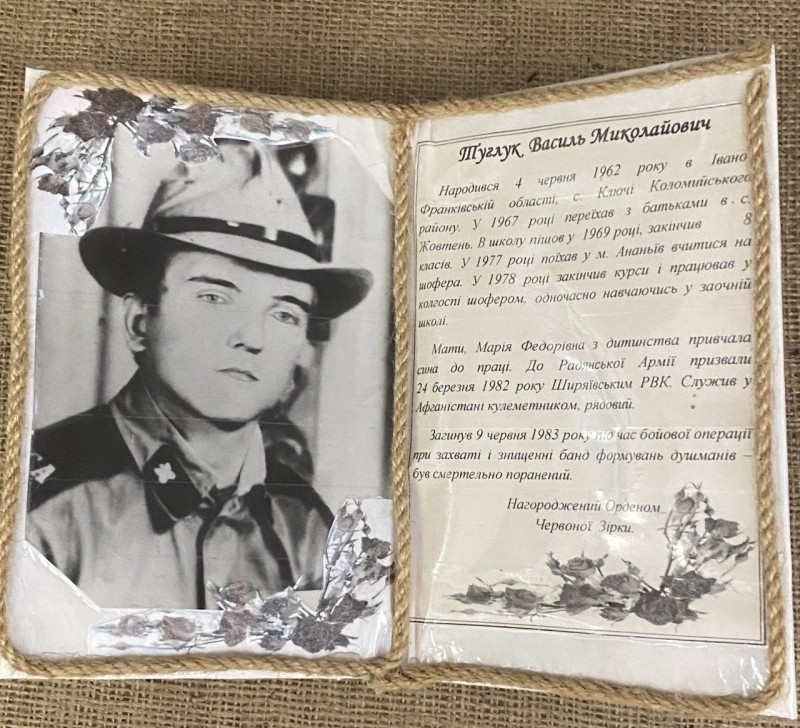 Туглук Василь Миколайович
Народився 4 червня 1962 року в Івано
Франківській області, с. Ключі Коломийського
району. У 1967 році переїхав з батьками в с.
Жовтень. В школу пішов у 1969 році, закінчив 8
класів. У 1977 році поїхав у м. Ананьїв вчитися на
шофера. У 1978 році закінчив курси і працював у
колгоспі шофером, одночасно навчаючись у заочній
школі.
Мати, Марія Федорівна з дитинства привчала
сина до праці. До Радянської Армії призвали
24 березня 1982 року Ширяївським РВК. Служив у
Афганістані кулеметником, рядовий.
Загинув 9 червня 1983 року під час бойової операції
при захваті і знищенні банд формувань душманів –
був смертельно поранений.
Нагороджений Орденом
Червоної Зірки.